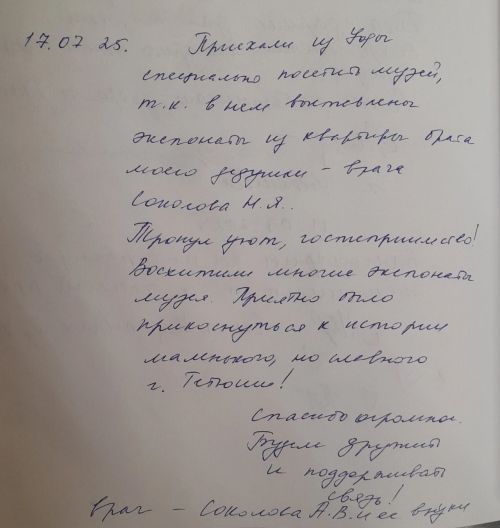 17.07 25. Приехали из Уфы
специально посетить музей,
т.к. в нем выставлены
экспонаты из квартиры брата
моего дедушки – врача
Соколова Н.Я..
Тронул уют, гостеприимство!
Восхитили многие экспонаты
музея. Приятно было
прикоснуться к истории
маленького, но славного
г. Тетюши!
Спасибо огромное.
Будем дружить
и поддерживать
связь!
врач – Соколова А.В. и ее внуки